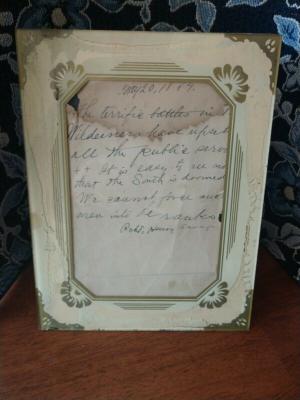 May 20, 1864.
The terrific battles in
Wilderness have upset
all the public
++ It is easy to see now
that the South is doomed
We cannot force
men into be ranks
Robt. Henry